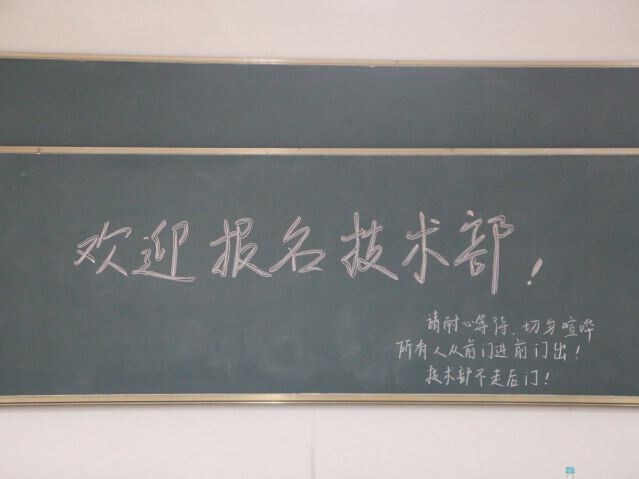 欢迎报名技术部！
请耐心等待，切勿喧哗
所有人从前门进前门出！
技术部不走后门！